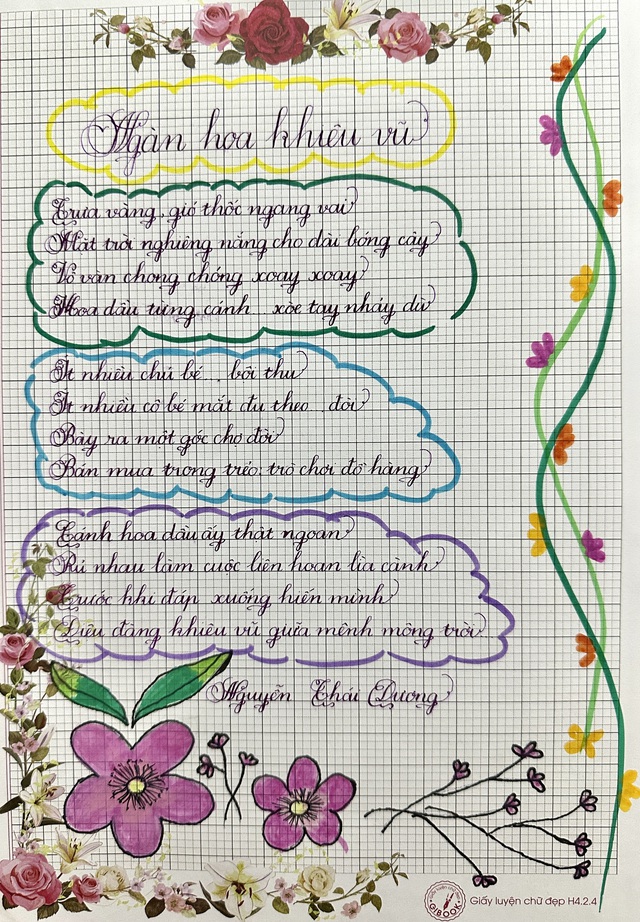 Ngàn hoa khiêu vũ
Trưa vàng, gió thốc ngang vai
Mặt trời nghiêng nắng cho dài bóng cây
Vô vàn chong chóng xoay xoay
Hoa dầu từng cánh xòe tay nhảy dù
Ít nhiều chú bé
Ít nhiều cô bé mắt đu theo
Bày ra một góc chợ đời
Bán mua trong trẻo: trò chơi đồ hàng
Cánh hoa dầu ấy thật ngoan
Rủ nhau làm cuộc liên hoan lìa cành
Trước khi đáp xuống hiến mình
Điệu đàng khiêu vũ giữa mênh mông trời
Nguyễn Thái Dương
GIBOOK
Giấy luyện chữ đẹp H4.2.4